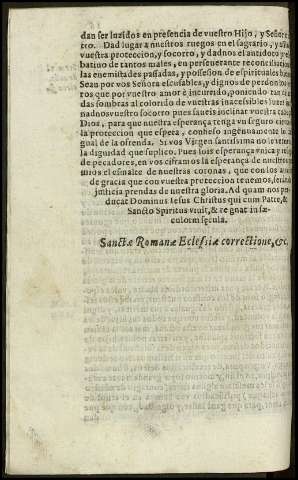 dan ser luzidos en presencia de vuestro Hijo, y Señor
tro. Dad lugar a nuestros ruegos en el sagrario, y
vuestra proteccion, y socorro, y dadnos el antidoto
batiuo de tantos males, en perseuerante reconciliacion
las enemistades passadas, y possession de espirituales
Sean por vos Señora escusables, y dignos de perdon los
ros que por vuestro amor è incurrido, poniendo tan
das sombras al colorido de vuestras inaccessibles
nadnos vuestro socorro pues sabeis inclinar vuestra
Dios, para que nuestra esperança tenga vn seguro
la proteccion que espera, confiesso ingenuamente
gual de la ofrenda. Si vos Virgen santissima no
la dignidad que suplico. Pues sois esperança vnica y
de pecadores, en vos ciframos la esperança de nuestros
mios el esmalte de nuestras coronas, que con los
de gracia que con vuestra proteccion tenemos,
justicia prendas de nuestra gloria. Ad quam nos
ducat Dominus Iesus Christus qui cum Patre, &
Sancto Spiritus viuit, & regnat in sæ-
culorm secula.
Sanctæ Romanæ Eclesiæ correctione, &c.